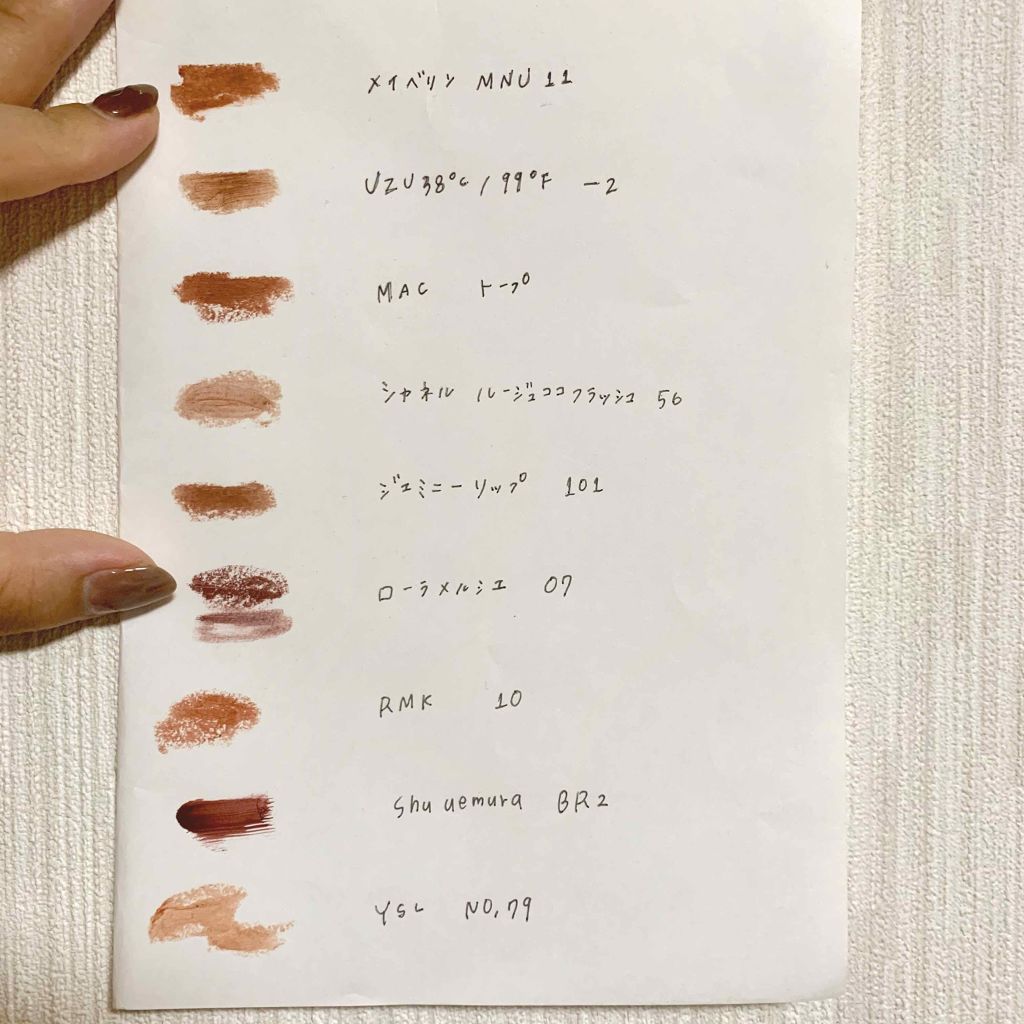 メイベリン MNU 11
UZU 38°C / 99°F -2
MAC トープ
シャネル ルージュココフラッシュ 56
ジェミニーリップ 101
ローラメルシエ 07
RMK 10
Shu uemura BR2
YSL NO,79